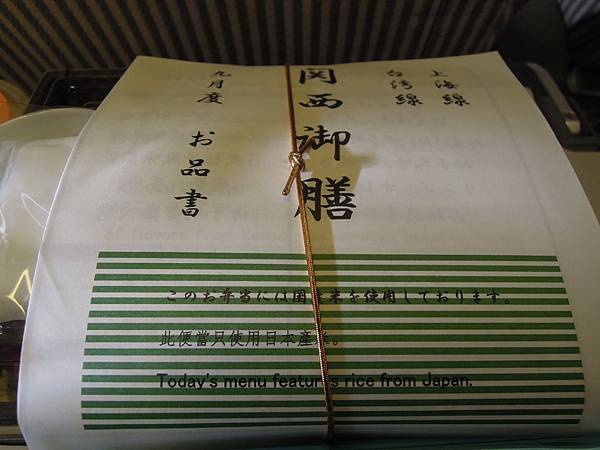 上海線
台湾線
関西御膳
九月度 お品書
このお弁当には国産米を使用しております。
此便當只使用日本產米。
Today's menu features rice from Japan.